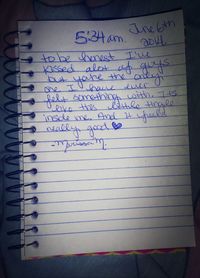 June 6th
5:34am 2014
to be honest I've
kissed alot of guys
but you're the only
one I have ever
felt something with. It's
like this little tingle
inside me. And it feels
really good